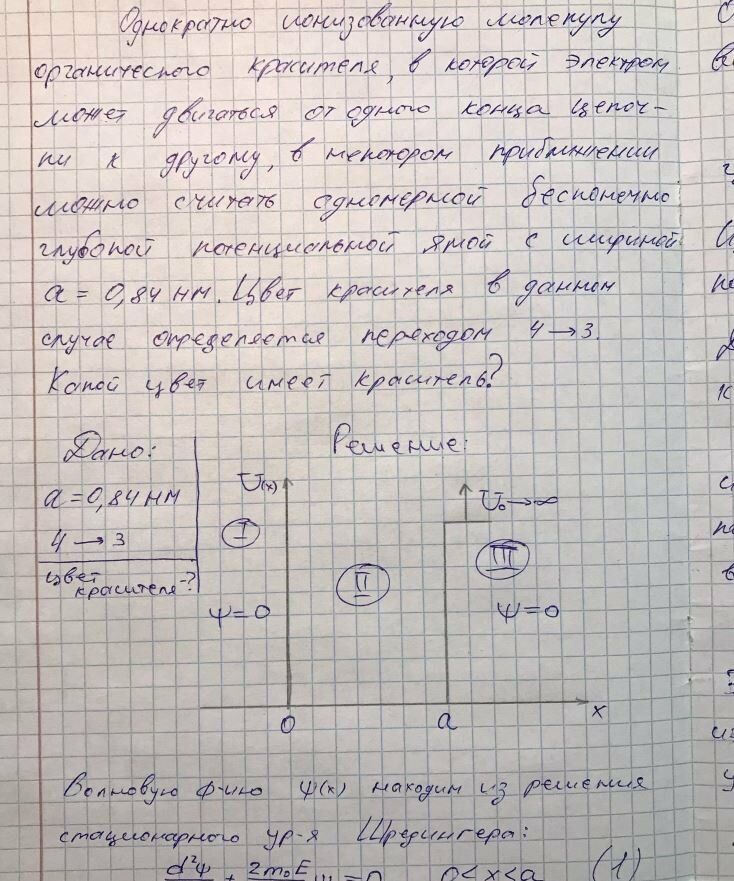 Однократно ионизованную молекулу
органического красителя, в которой электрон
может двигаться от одного конца цепоч-
ки к другому, в некотором приближении
можно считать одномерной бесконечно
глубокой потенциальной ямой с шириной
a = 0,84 нм. Цвет красителя в данном
случае определяется переходом 4 → 3.
Какой цвет имеет краситель?
Дано:
Решение:
a = 0,84 нм
4 → 3
цвет
красителя - ?
U(x)
U₀ → ∞
I
II
III
ψ = 0
ψ = 0
0
a
x
Волновую ф-ию ψ(x) находим из решения
стационарного ур-я Шредингера:
d²ψ + 2m₀E = 0 0 < x < a (1)